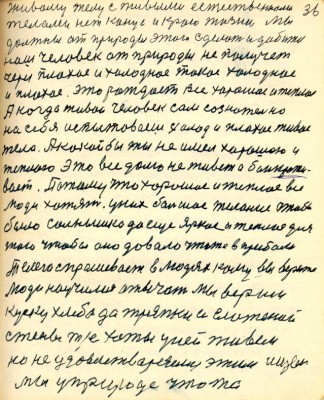 живому телу с живыми естественными
телами нет конца и краю жизни мы 36
должны от природы этого сделать и добиться
наш человек от природы не получет
чере плохое и холодное такое холодное
и плохое. это рождает все хорошое и теплое
А когда живой человек сам сознательно
на себя испытоваем холод и плохое живое
тело. А какой бы ты не имел хорошого и
теплого это все долго не живет
вает. Потому что хорошое и теплое все
люди хотят. у них большое желание чтобы
было солнышко да еще яркое и теплое для
того чтобы оно довало что то в прибыль
Тело спрашевает в людях кому вы верите
люди научились отвичат мы верим
куску хлеба да тряпки и сложеной
стены т.е. хаты у ней живем
но не удовлетваряемси этим
мы у природе что то